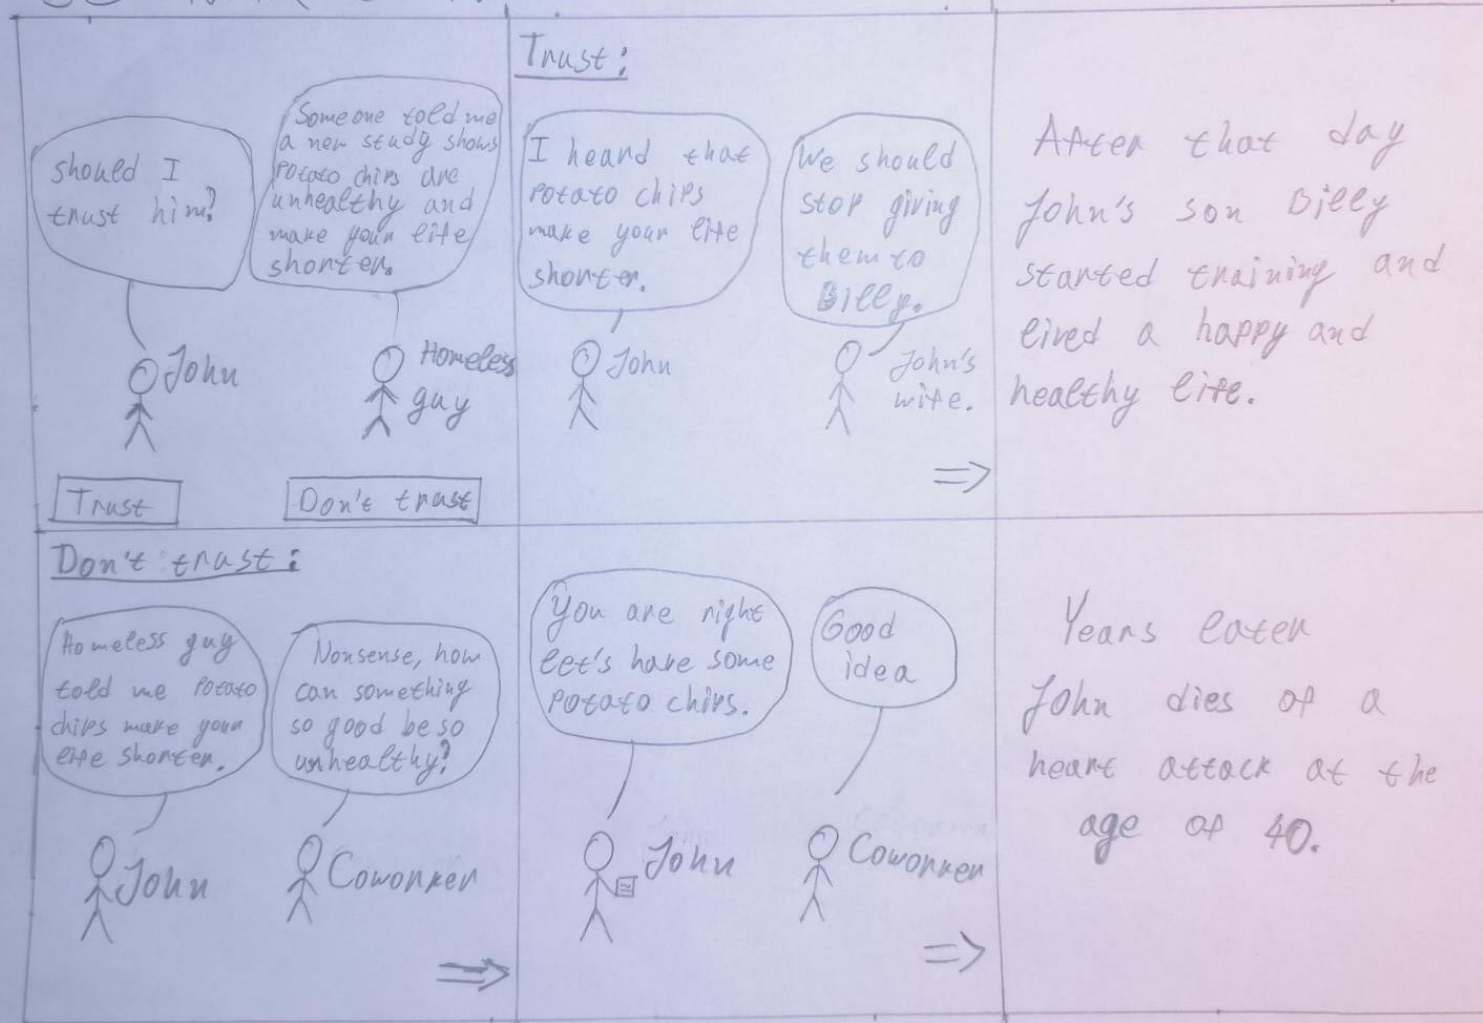 should I
trust him?
Someone told me
a new study shows
potato chips are
unhealthy and
make your life
shorter.
John
Homeless
guy
Trust
Don't trust
Trust:
I heard that
potato chips
make your life
shorter.
We should
stop giving
them to
Billy.
John
John's
wife.
After that day
John's son Billy
started training and
lived a happy and
healthy life.
Don't trust:
Homeless guy
told me potato
chips make your
life shorter.
Nonsense, how
can something
so good be so
unhealthy?
John
Coworker
You are right
let's have some
potato chips.
Good
idea
John
Coworker
Years later
John dies of a
heart attack at the
age of 40.